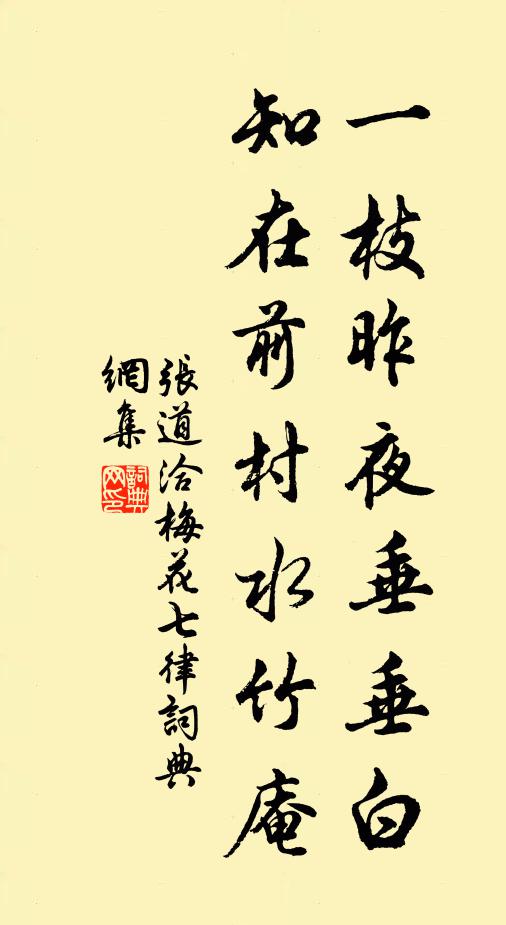 一枝昨夜垂垂白
知在前村水竹庵
張道洽梅花七律詞典
網集
詞典
网印